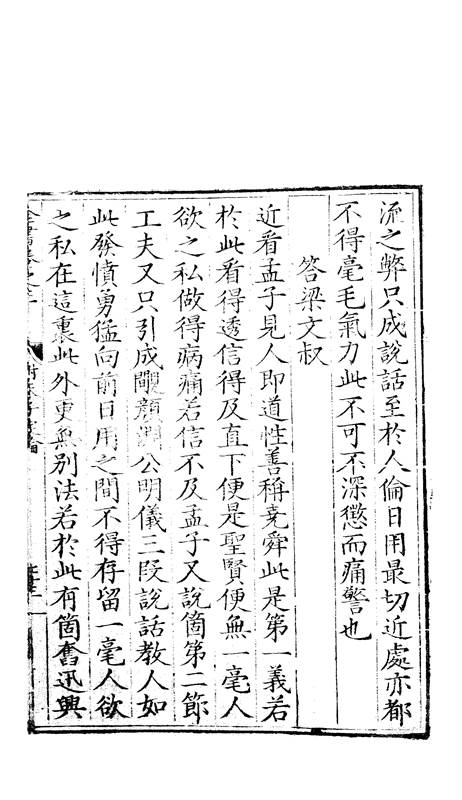 流之弊只成說話至於人倫日用最切近處亦都
不得毫毛氣力此不可不深懲而痛警也
答梁文叔
近看孟子見人即道性善稱堯舜此是第一義若
於此看得透信得及直下便是聖賢便無一毫人
欲之私做得病痛若信不及孟子又說箇第二節
工夫又只引成覸顏淵公明儀三段說話教人如
此發憤勇猛向前日用之間不得存留一毫人欲
之私在這裏此外更無別法若於此有箇奮迅興